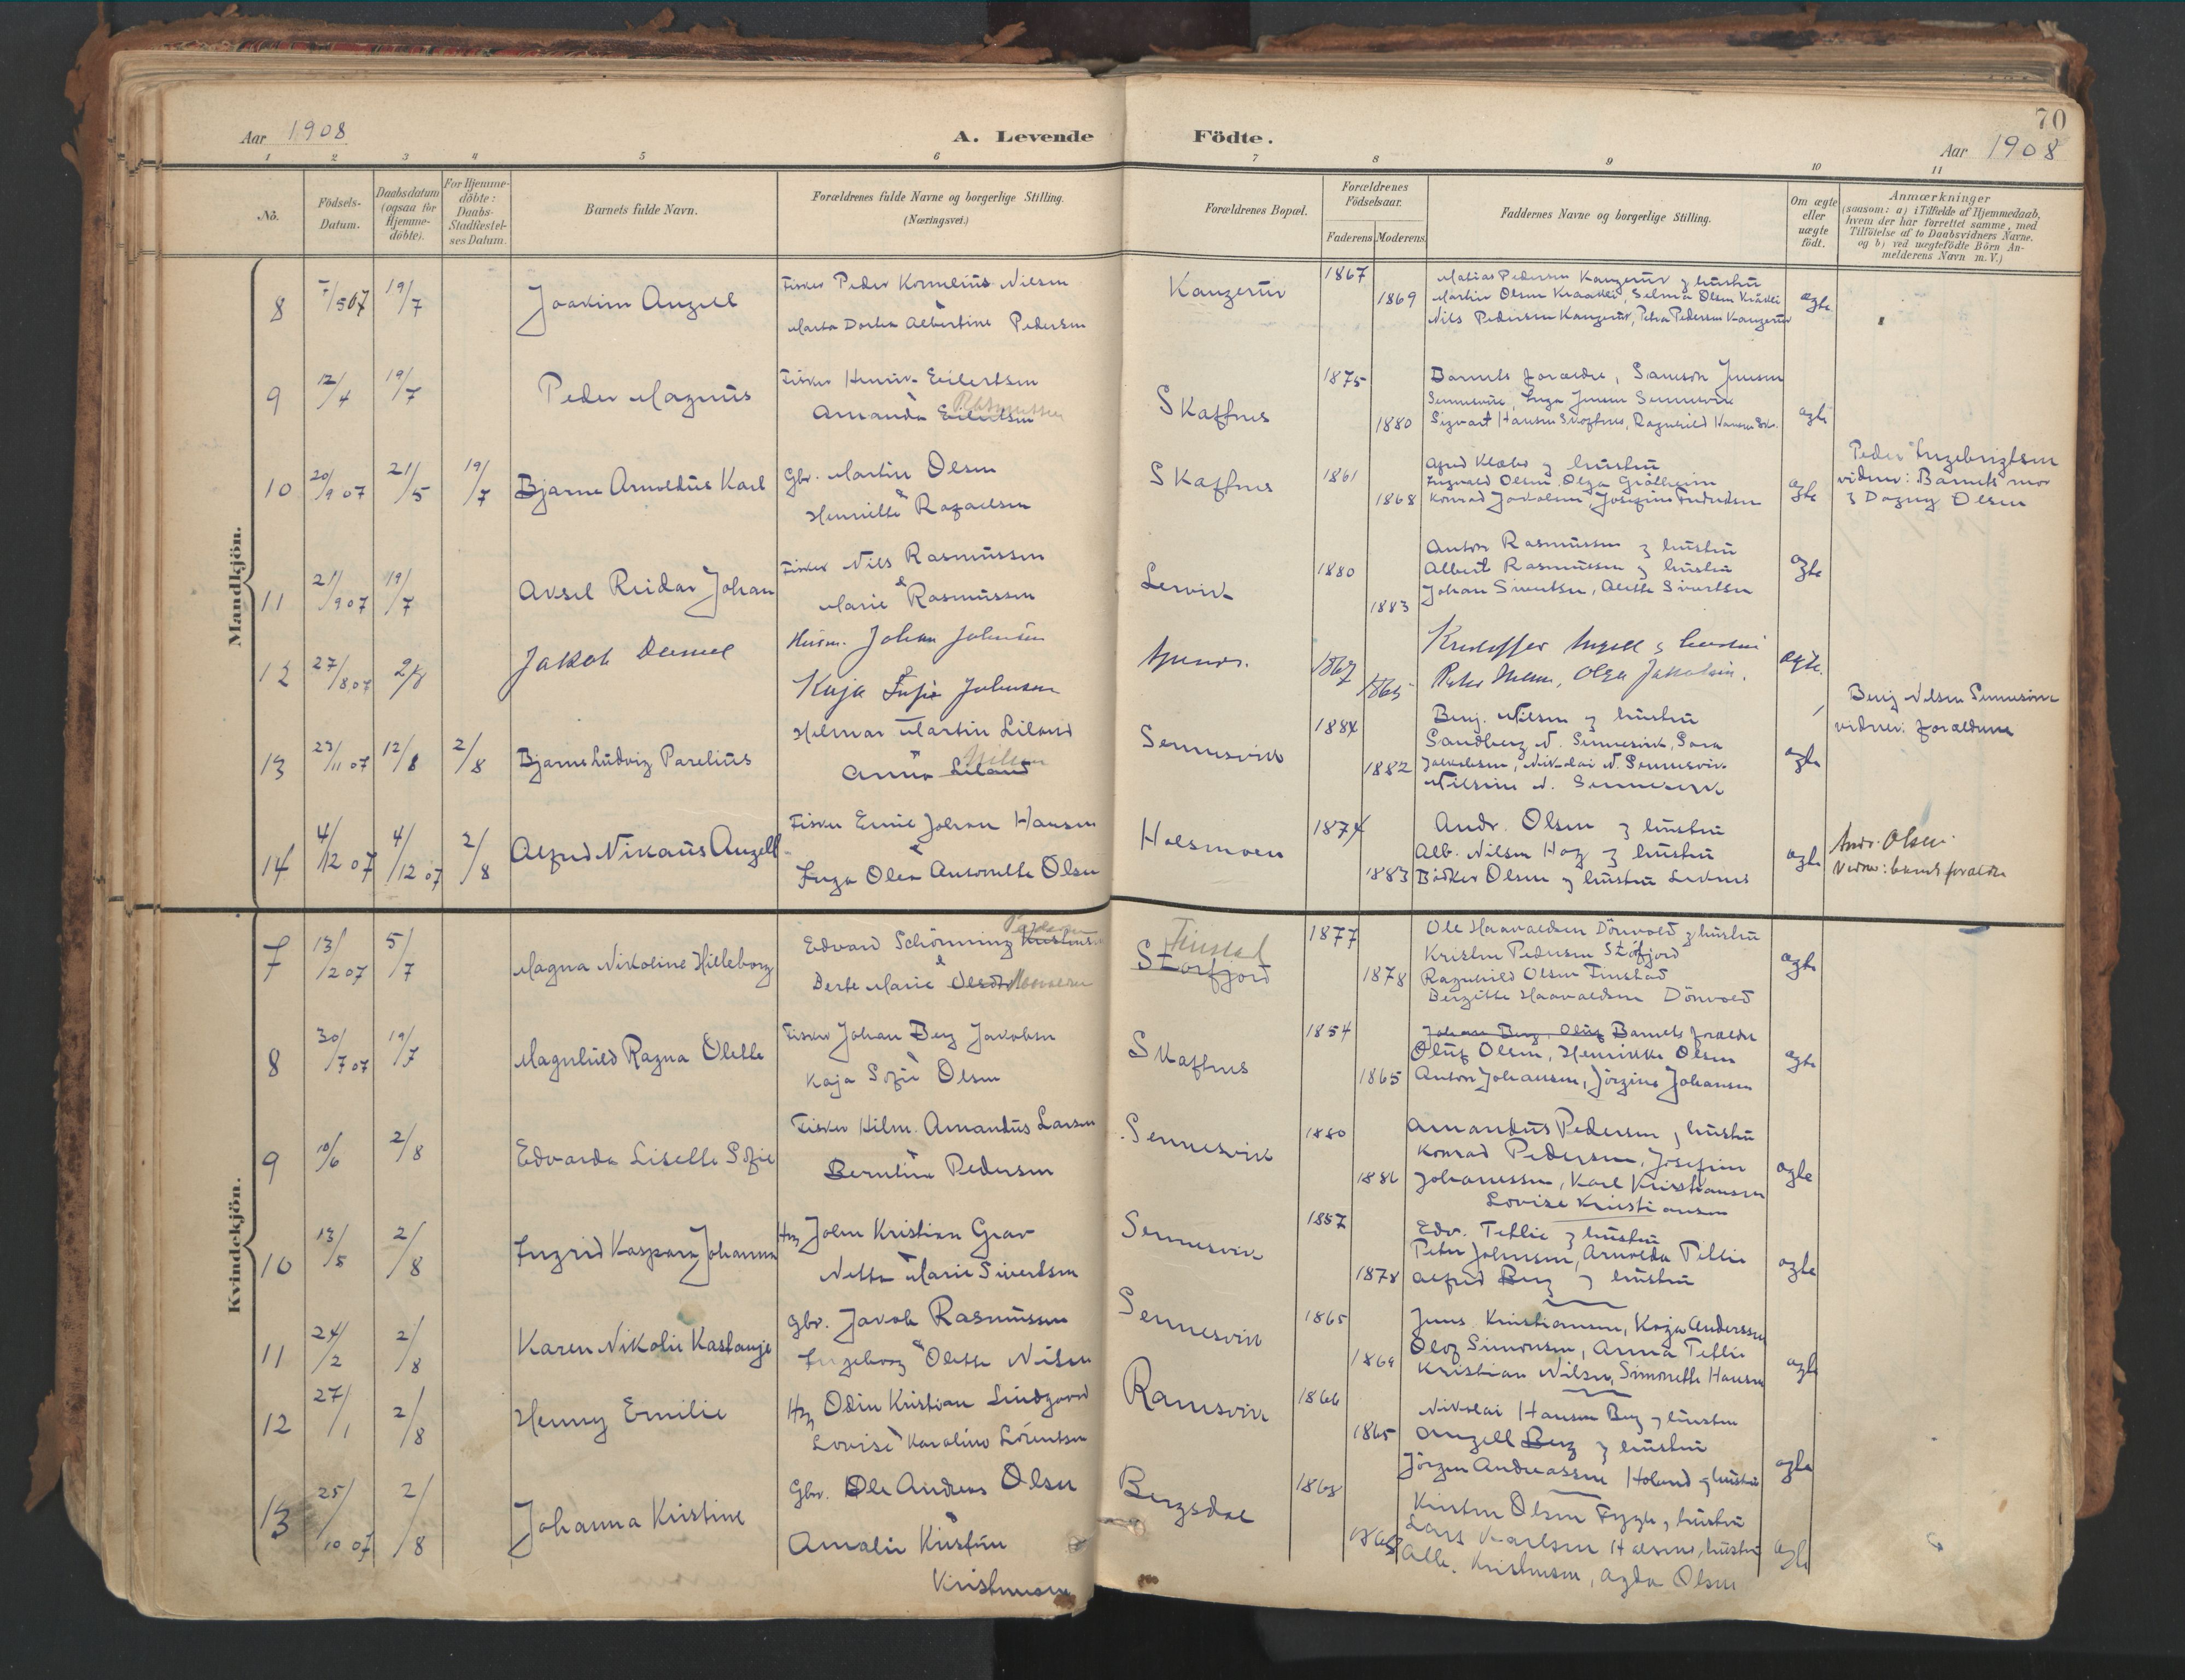 70
Aar 1908 A. Levende Födte. Aar 1908
1 2 3 4 5 6 7 8 9 10 11
No.
Födsels-
Datum.
Daabsdatum
(ogsaa for
Hjemme-
döbte).
For Hjemme-
döbte:
Daabs-
Stadfæstel-
ses Datum.
Barnets fulde Navn.
Forældrenes fulde Navne og borgerlige Stilling.
(Næringsvei.)
Forældrenes Bopæl.
Forældrenes
Födselsaar.
Faderens Moderens
Faddernes Navne og borgerlige Stilling.
Om ægte
eller
uægte
födt.
Anmærkninger
(saasom: a) i Tilfælde af Hjemmedaab,
hvem der har forrettet samme, med
Tilföielse af to Daabsvidners Navne.
og b) ved uægtefödte Börn An-
melderens Navn m. V.)
Mandkjön.
8 7/5 07 19/7 Joakim Angell
Fisker Peder Kornelius Nilsen
&
Marta Dortea Albertine Pedersen
Kangerur 1867 1869
Matias Pedersen Kangerur & hustru
Martin Olsen Kraakli, Selma Olsen Kråkli
Nils Pedersen Kangerur, Petra Pedersen Kangerur
ægte
9 12/4 19/7 Peder Magnus
Fisker Henrik Eilertsen
&
Amanda Eilertsen Rasmussen
Skafnes 1875 1880
Barnets forældre, Samson Jensen
Sennesvik, Inga Jensen Sennesvik
Sigvart Hansen Skafnes, Ragnhild Hansen Sk.
ægte
10 20/9 07 21/5 19/7 Bjarne Arnoldus Karl
Gbr. Martin Olsen
&
Henriette Rafaelsen
Skafnes 1861 1868
Alfred Klæbo & hustru
Ingvald Olsen, Olga
Konrad Jakobsen, Josefine Fredriksen
ægte
Peder Ingebrigtsen
vidner: Barnets mor
& Dagny Olsen
11 21/9 07 19/7 Aksel Reidar Johan
Fisker Nils Rasmussen
&
Marie Rasmussen
Lervik 1880 1883
Anton Rasmussen & hustru
Albert Rasmussen & hustru
Johan Sivertsen, Alette Sivertsen
ægte
12 27/8 07 2/8 Jakob Daniel
Husm. Johan Johnsen
&
Kaja Sofie Johnsen
1867 1865
Kristoffer & hustru
Olga Jakobsen.
ægte.
13 23/11 07 12/8 2/8 Bjarne Ludvig Parelius
Helmar Martin Liland
&
Anna Liland Nilsen
Sennesvik 1884 1882
Benj. Nilsen & hustru
Sandberg N. Sennesvik, Sara
Jakobsen, Nikolai N. Sennesvik
Nilsine N. Sennesvik
ægte
Benj Nilsen Sennesvik
vidner: forældrene
14 4/12 07 4/12 07 2/8 Alfred Nikaus Angell
Fisker Emil Johan Hansen
&
Inga Olea Antonette Olsen
Holsmoen 1874 1883
Andr. Olsen & hustru
Alb. Nilsen Hag & hustru
Bödker Olsen & hustru Leknes
ægte
Andr. Olsen
Vidner: barnets forældre
Kvindekjön.
7 13/12 07 5/7 Magna Nikoline Hilleborg
Edvard Schönning Kristensen Pedersen
&
Berte Marie Olsdtr
Storfjord Finstad 1877 1878
Ole Haavaldsen Dönvold & hustru
Kristen Pedersen Storfjord
Ragnhild Olsen Finstad
Bergitte Haavaldsen Dönvold
ægte
8 30/7 07 19/7 Magnhild Ragna Olette
Fisker Johan Berg Jakobsen
&
Kaja Sofie Olsen
Skafnes 1854 1865
Johan Berg, Oluf Barnets forældre
Oluf Olsen, Henrikke Olsen
Anton Johansen, Jörgine Johansen
ægte
9 10/6 2/8 Edvarda Liselle Sofie
Fisker Hilm. Amandus Larsen
&
Berntine Pedersen
Sennesvik 1880 1886
Amandus Pedersen & hustru
Konrad Pedersen, Josefine
Johannessen, Karl Kristiansen
Lovise Kristiansen
ægte
10 13/5 2/8 Ingrid Kaspara Johanna
Hsm John Kristian Grav
&
Netta Marie Sivertsen
Sennesvik 1857 1878
Edv. Teflie & hustru
Peter Johnsen, Arnolda Teflie
Alfred Berg & hustru
ægte
11 24/2 2/8 Karen Nikolie Kastanje
Gbr. Jakob Rasmussen
&
Ingeborg Olette Nilsen
Sennesvik 1865 1869
Jens Kristiansen, Kaja Anderssen
Olaf Simonsen, Anna Teflie
Kristian Nilsen, Simonette Hansen
ægte
12 27/1 2/8 Henny Emilie
Hsm Odin Kristian Lindgaard
&
Lovise Karoline Lorentsen
Ramsvik 1866 1865
Nikolai Hansen Berg & hustru
Angell Berg & hustru
Jörgen Andreassen Holand & hustru
ægte
13 25/10 07 2/8 Johanna Kristine
Gbr. Ole Andreas Olsen
&
Amalie Kristine
Kristensen
Bergsdal 1868 1868
Kristen Olsen Fygle & hustru
Lars Karlsen Halsnes, hustru
Alb. Kristensen, Agda Olsen
ægte